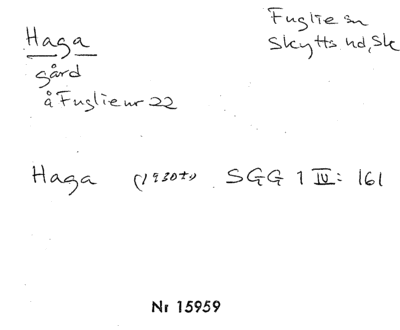 Haga
gård
å Fuglie nr 22
Fuglie sn
Skytts hd, Sk
Haga (1930t) SGG 1 IV: 161
Nr 15959